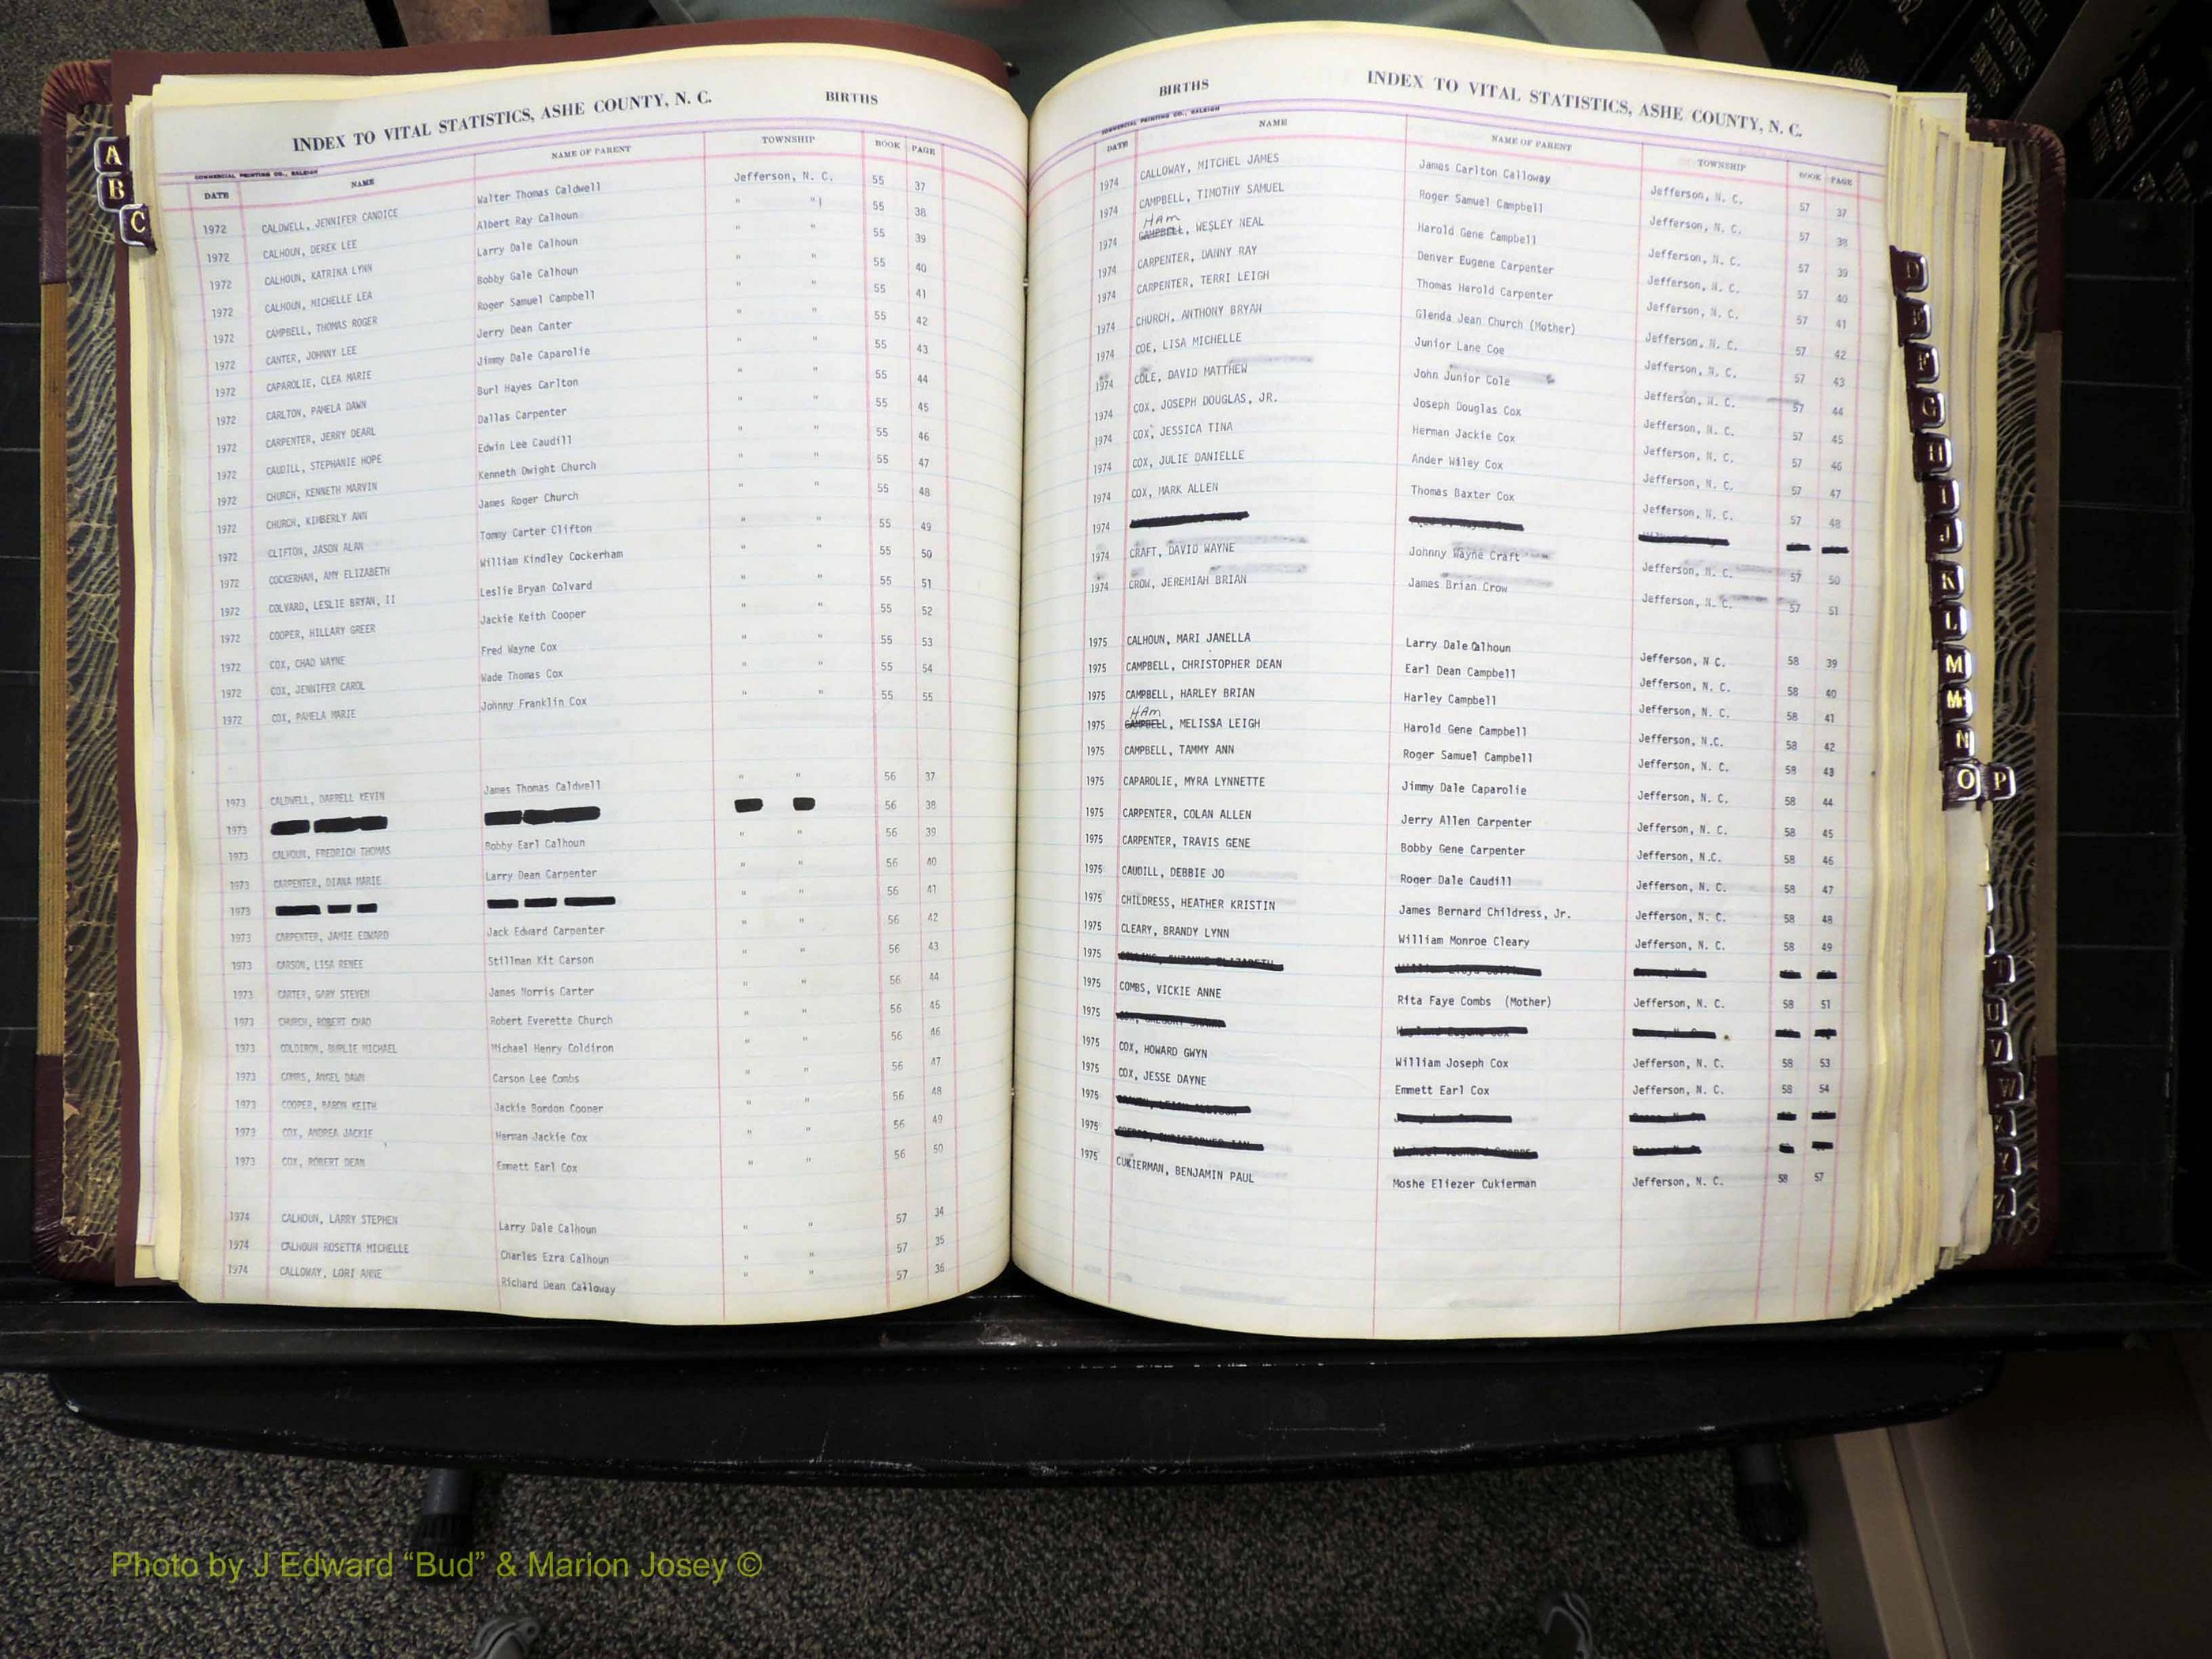 INDEX TO VITAL STATISTICS, ASHE COUNTY, N. C. BIRTHS
COMMERCIAL PRINTING CO., RALEIGH
DATE NAME NAME OF PARENT TOWNSHIP BOOK PAGE
1972 CALDWELL, JENNIFER CANDICE Walter Thomas Caldwell Jefferson, N. C. 55 37
1972 CALHOUN, DEREK LEE Albert Ray Calhoun " " 55 38
1972 CALHOUN, KATRINA LYNN Larry Dale Calhoun " " 55 39
1972 CALHOUN, MICHELLE LEA Bobby Gale Calhoun " " 55 40
1972 CAMPBELL, THOMAS ROGER Roger Samuel Campbell " " 55 41
1972 CANTER, JOHNNY LEE Jerry Dean Canter " " 55 42
1972 CAPAROLIE, CLEA MARIE Jimmy Dale Caparolie " " 55 43
1972 CARLTON, PAMELA DAWN Burl Hayes Carlton " " 55 44
1972 CARPENTER, JERRY DEARL Dallas Carpenter " " 55 45
1972 CAUDILL, STEPHANIE HOPE Edwin Lee Caudill " " 55 46
1972 CHURCH, KENNETH MARVIN Kenneth Dwight Church " " 55 47
1972 CHURCH, KIMBERLY ANN James Roger Church " " 55 48
1972 CLIFTON, JASON ALAN Tommy Carter Clifton " " 55 49
1972 COCKERHAM, AMY ELIZABETH William Kindley Cockerham " " 55 50
1972 COLVARD, LESLIE BRYAN, II Leslie Bryan Colvard " " 55 51
1972 COOPER, HILLARY GREER Jackie Keith Cooper " " 55 52
1972 COX, CHAD WAYNE Fred Wayne Cox " " 55 53
1972 COX, JENNIFER CAROL Wade Thomas Cox " " 55 54
1972 COX, PAMELA MARIE Johnny Franklin Cox " " 55 55
1973 CALDWELL, DARRELL KEVIN James Thomas Caldwell " " 56 37
1973 56 38
1973 CALHOUN, FREDRICH THOMAS Bobby Earl Calhoun " " 56 39
1973 CARPENTER, DIANA MARIE Larry Dean Carpenter " " 56 40
1973 " " 56 41
1973 CARPENTER, JAMIE EDWARD Jack Edward Carpenter " " 56 42
1973 CARSON, LISA RENEE Stillman Kit Carson " " 56 43
1973 CARTER, GARY STEVEN James Norris Carter " " 56 44
1973 CHURCH, ROBERT CHAD Robert Everette Church " " 56 45
1973 COLDIRON, BURLIE MICHAEL Michael Henry Coldiron " " 56 46
1973 COMBS, ANGEL DAWN Carson Lee Combs " " 56 47
1973 COOPER, BARON KEITH Jackie Bordon Cooper " " 56 48
1973 COX, ANDREA JACKIE Herman Jackie Cox " " 56 49
1973 COX, ROBERT DEAN Emmett Earl Cox " " 56 50
1974 CALHOUN, LARRY STEPHEN Larry Dale Calhoun " " 57 34
1974 CALHOUN ROSETTA MICHELLE Charles Ezra Calhoun " " 57 35
1974 CALLOWAY, LORI ANNE Richard Dean Calloway " " 57 36
BIRTHS INDEX TO VITAL STATISTICS, ASHE COUNTY, N. C.
COMMERCIAL PRINTING CO., RALEIGH
DATE NAME NAME OF PARENT TOWNSHIP BOOK PAGE
1974 CALLOWAY, MITCHEL JAMES James Carlton Calloway Jefferson, N. C. 57 37
1974 CAMPBELL, TIMOTHY SAMUEL Roger Samuel Campbell Jefferson, N. C. 57 38
HAm
1974 CAMPBELL, WESLEY NEAL Harold Gene Campbell Jefferson, N. C. 57 39
1974 CARPENTER, DANNY RAY Denver Eugene Carpenter Jefferson, N. C. 57 40
1974 CARPENTER, TERRI LEIGH Thomas Harold Carpenter Jefferson, N. C. 57 41
1974 CHURCH, ANTHONY BRYAN Glenda Jean Church (Mother) Jefferson, N. C. 57 42
1974 COE, LISA MICHELLE Junior Lane Coe Jefferson, N. C. 57 43
1974 COLE, DAVID MATTHEW John Junior Cole Jefferson, N. C. 57 44
1974 COX, JOSEPH DOUGLAS, JR. Joseph Douglas Cox Jefferson, N. C. 57 45
1974 COX, JESSICA TINA Herman Jackie Cox Jefferson, N. C. 57 46
1974 COX, JULIE DANIELLE Ander Wiley Cox Jefferson, N. C. 57 47
1974 COX, MARK ALLEN Thomas Baxter Cox Jefferson, N. C. 57 48
1974
1974 CRAFT, DAVID WAYNE Johnny Wayne Craft Jefferson, N. C. 57 50
1974 CROW, JEREMIAH BRIAN James Brian Crow Jefferson, N. C. 57 51
1975 CALHOUN, MARI JANELLA Larry Dale Calhoun Jefferson, N C. 58 39
1975 CAMPBELL, CHRISTOPHER DEAN Earl Dean Campbell Jefferson, N. C. 58 40
1975 CAMPBELL, HARLEY BRIAN Harley Campbell Jefferson, N. C. 58 41
HAm
1975 CAMPBELL, MELISSA LEIGH Harold Gene Campbell Jefferson, N.C. 58 42
1975 CAMPBELL, TAMMY ANN Roger Samuel Campbell Jefferson, N. C. 58 43
1975 CAPAROLIE, MYRA LYNNETTE Jimmy Dale Caparolie Jefferson, N. C. 58 44
1975 CARPENTER, COLAN ALLEN Jerry Allen Carpenter Jefferson, N. C. 58 45
1975 CARPENTER, TRAVIS GENE Bobby Gene Carpenter Jefferson, N.C. 58 46
1975 CAUDILL, DEBBIE JO Roger Dale Caudill Jefferson, N. C. 58 47
1975 CHILDRESS, HEATHER KRISTIN James Bernard Childress, Jr. Jefferson, N. C. 58 48
1975 CLEARY, BRANDY LYNN William Monroe Cleary Jefferson, N. C. 58 49
1975
1975 COMBS, VICKIE ANNE Rita Faye Combs (Mother) Jefferson, N. C. 58 51
1975
1975 COX, HOWARD GWYN William Joseph Cox Jefferson, N. C. 58 53
1975 COX, JESSE DAYNE Emmett Earl Cox Jefferson, N. C. 58 54
1975
1975
1975 CUKIERMAN, BENJAMIN PAUL Moshe Eliezer Cukierman Jefferson, N. C. 58 57
A
B
C
D
E
F
G
H
I
J
K
L
M
Mc
N
O P
V
W
Photo by J Edward “Bud” & Marion Josey ©